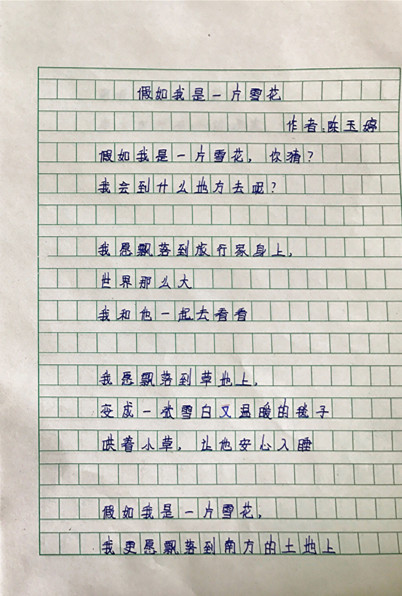 假如我是一片雪花
作者:陈玉婷
假如我是一片雪花，你猜？
我会到什么地方去呢？
我愿飘落到旅行家身上，
世界那么大
我和他一起去看看
我愿飘落到草地上，
变成一张雪白又温暖的毯子
哄着小草，让他安心入睡
假如我是一片雪花，
我更愿飘落到南方的土地上